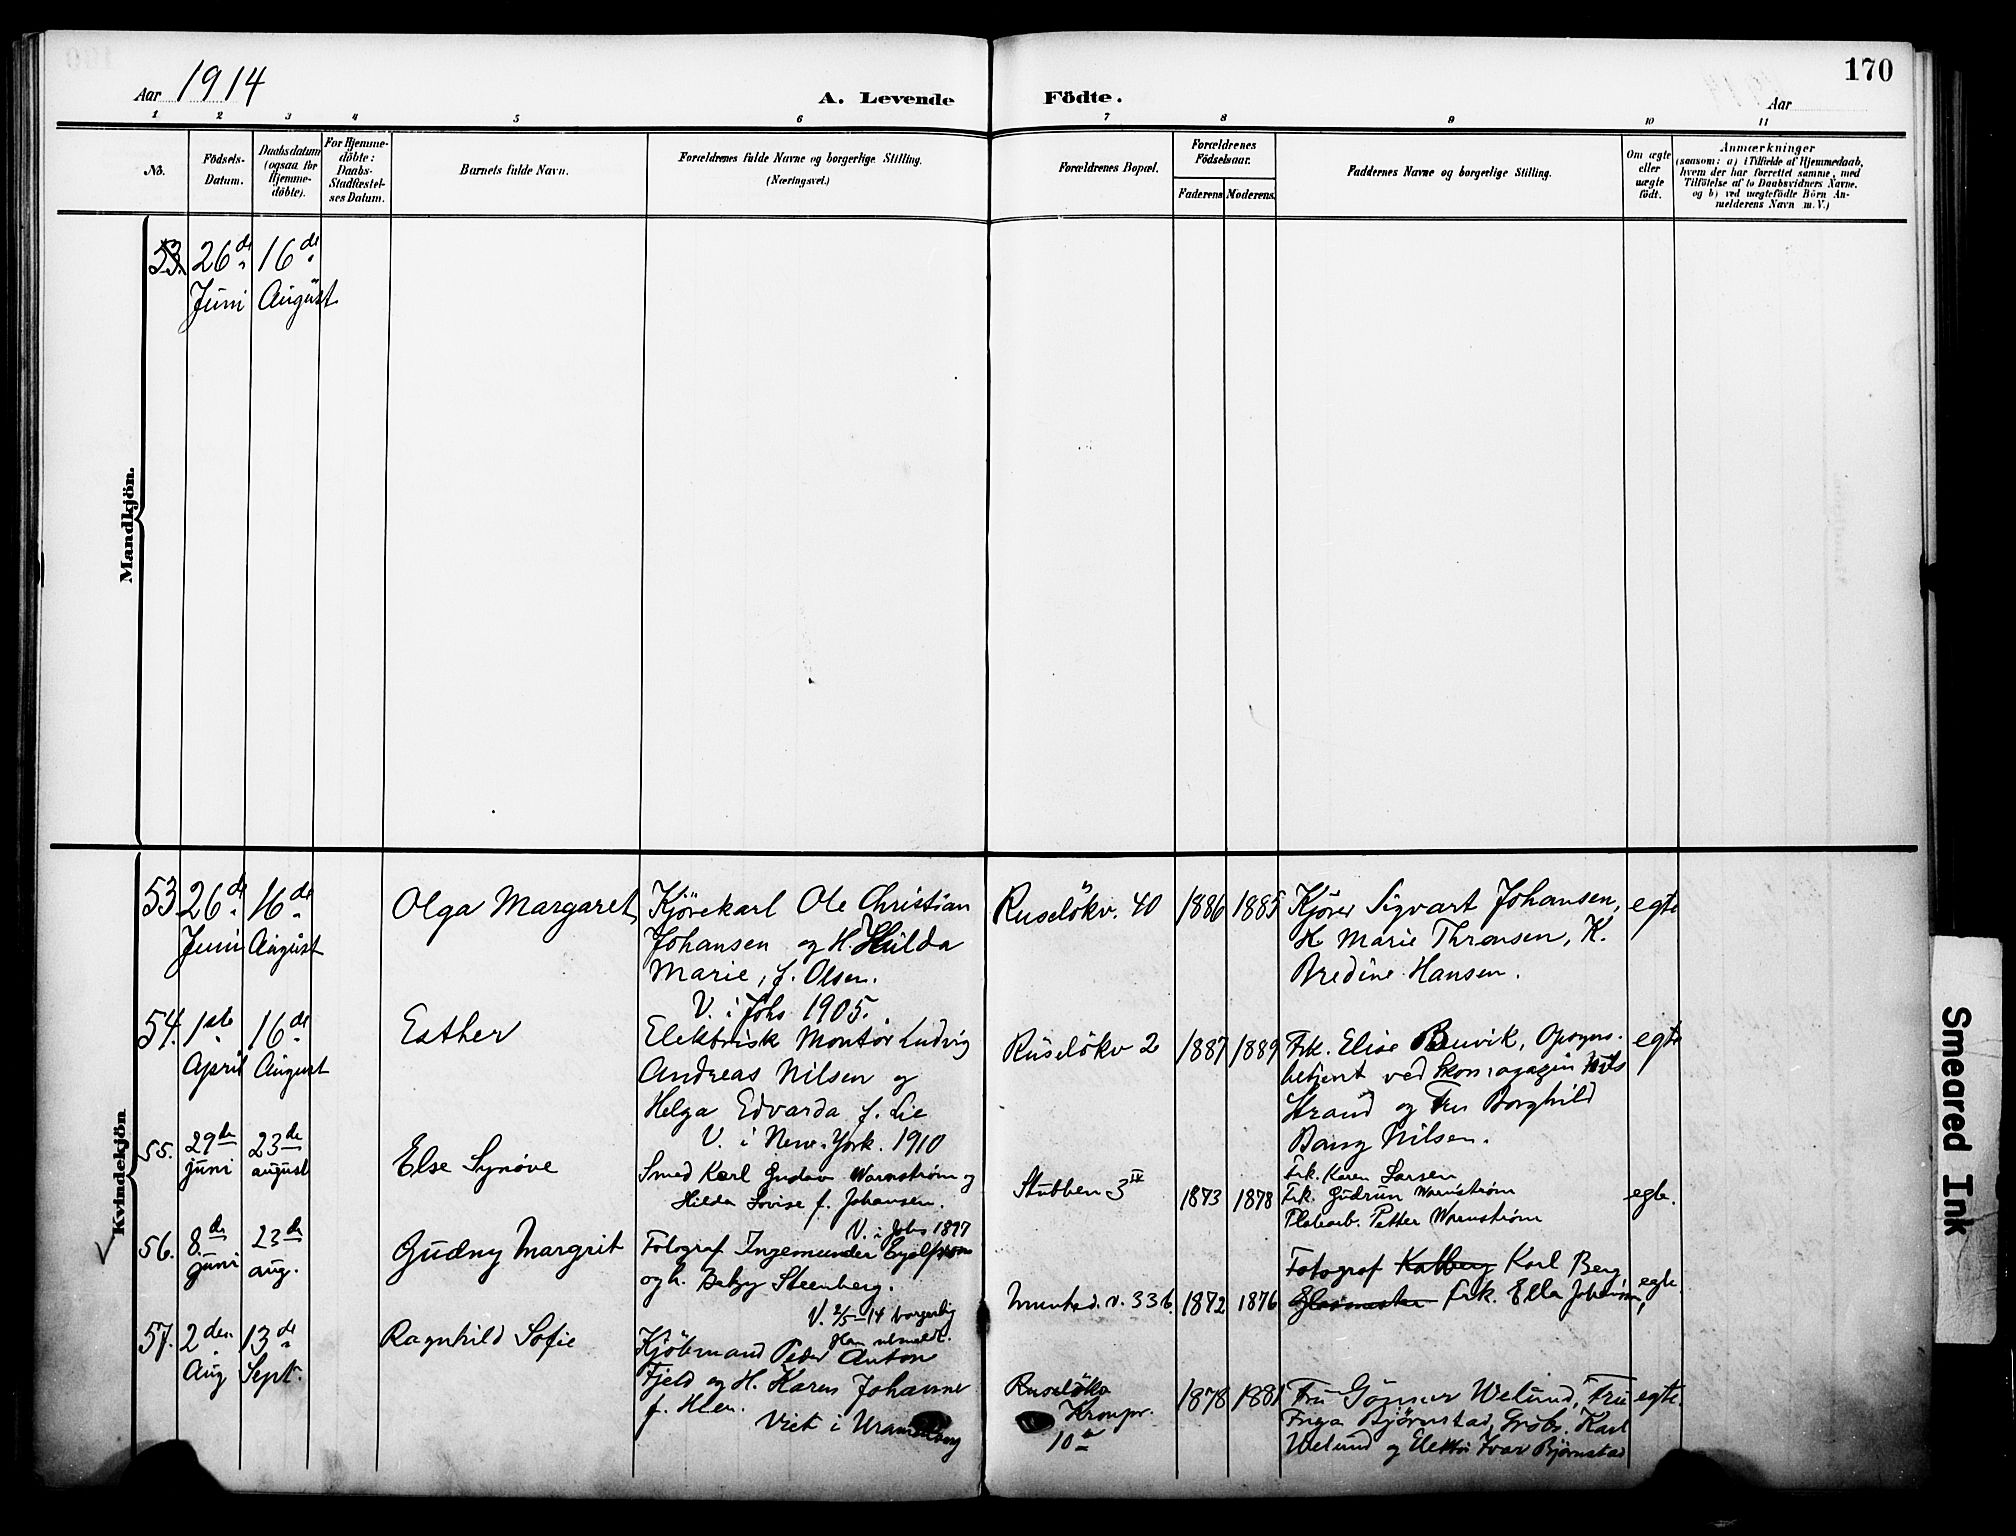 Aar 1914
A. Levende Födte.
170
Aar
1 2 3 4 5 6 7 8 9 10 11
No.
Födsels-
Datum.
Daabsdatum
(ogsaa for
Hjemme-
döbte).
For Hjemme-
döbte:
Daabs-
Stadfæstel-
ses Datum.
Barnets fulde Navn.
Forældrenes fulde Navne og borgerlige Stilling.
(Næringsvei.)
Forældrenes Bopæl.
Forældrenes
Födselsaar.
Faderens
Moderens.
Faddernes Navne og borgerlige Stilling.
Om ægte
eller
uægte
födt.
Anmærkninger
(saasom: a) i Tilfælde af Hjemmedaab,
hvem der har forrettet samme, med
Tilföielse af to Daabsvidners Navne.
og b) ved uægtefödte Börn An-
melderens Navn m. V.)
Mandkjön.
53. 26de 16de
Juni August
Kvindekjön
53 26de 16de
Juni August
Olga Margaret
Kjörekarl Ole Christian
Johansen og H. Hulda
Marie, f. Olsen.
V. i Johs 1905.
Ruselökv. 40
1886 1885
Kjörer Sigvart Johansen,
K Marie Thronsen, K.
Bredine Hansen.
egte
54. 1ste 16de
April August
Esther
Elektrisk Montör Ludvig
Andreas Nilsen og
Helga Edvarda f. Lie
V. i New-York. 1910
Ruselökv 2
1887 1889
Frk. Elise Buvik, Opsyns-
betjent ved Skomagagin Nils
Strand og Fru Borghild
Bang Nilsen.
egte
55. 29de 23de
juni august
Else Synöve
Smed Karl Gustav Warnström og
Hilda Lovise f. Johansen.
V. i Johs 1897
Stubben 3 IV
1873 1878
Frk. Karen Larsen
Frk. Gudrun Warnström
Platearb. Petter Warnström
egte.
56. 8de 23de
juni aug.
Gudny Margrit
Fotograf Ingemunder Eyolfsson
og h. Betzy Steenberg.
V. 2/5-14 borgerlig
Han utmeldt.
Munked. v. 33 b.
1872 1876
Fotograf Kalberg Karl Berg
Glasmester Frk. Ella Johansen,
egte
57. 2den 13de
Aug Sept.
Ragnhild Sofie
Kjöbmand Peder Anton
Fjeld og H. Karen Johanne
f. Hlen.
Viet i Uranienborg
Ruselökv
Kronpr.
10
1878 1881
Fru Gönner Welund, Fru
Friga Björnstad, Grobs. Karl
Welund og Elektr Ivar Björnstad
egte.
Smeared Ink